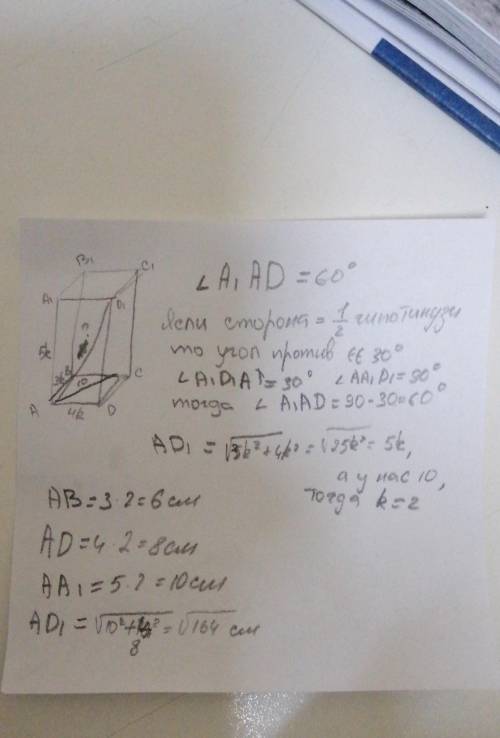 B1
C1
A1
D1
?
5k
3k
B
10
C
A
4k
D
∠ A1 AD = 60°
Ясли сторона = 1/2 гипотинузи
то угол против её 30°
∠ A1D1A = 30° ∠ AA1D1 = 90°
тогда ∠ A1AD = 90 - 30 = 60°
AD1 = √3k²+4k² = √25k² = 5k,
а у нас 10,
тогда k = 2
AB = 3 · 2 = 6 см
AD = 4 · 2 = 8 см
AA1 = 5 · 2 = 10 см
AD1 = √10²+8² = √164 см